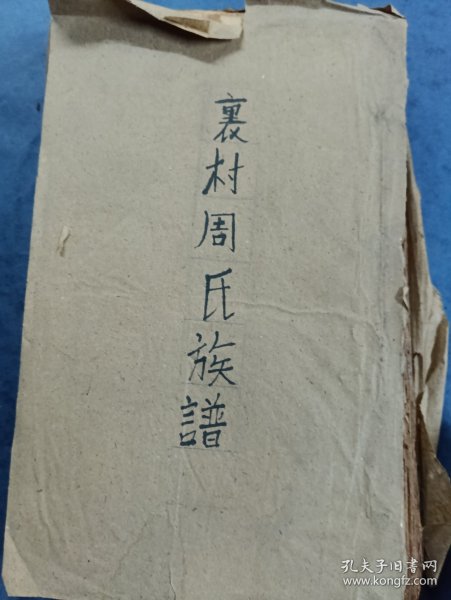 裏村周氏族譜
孔夫子旧书网
www.kongfz.com